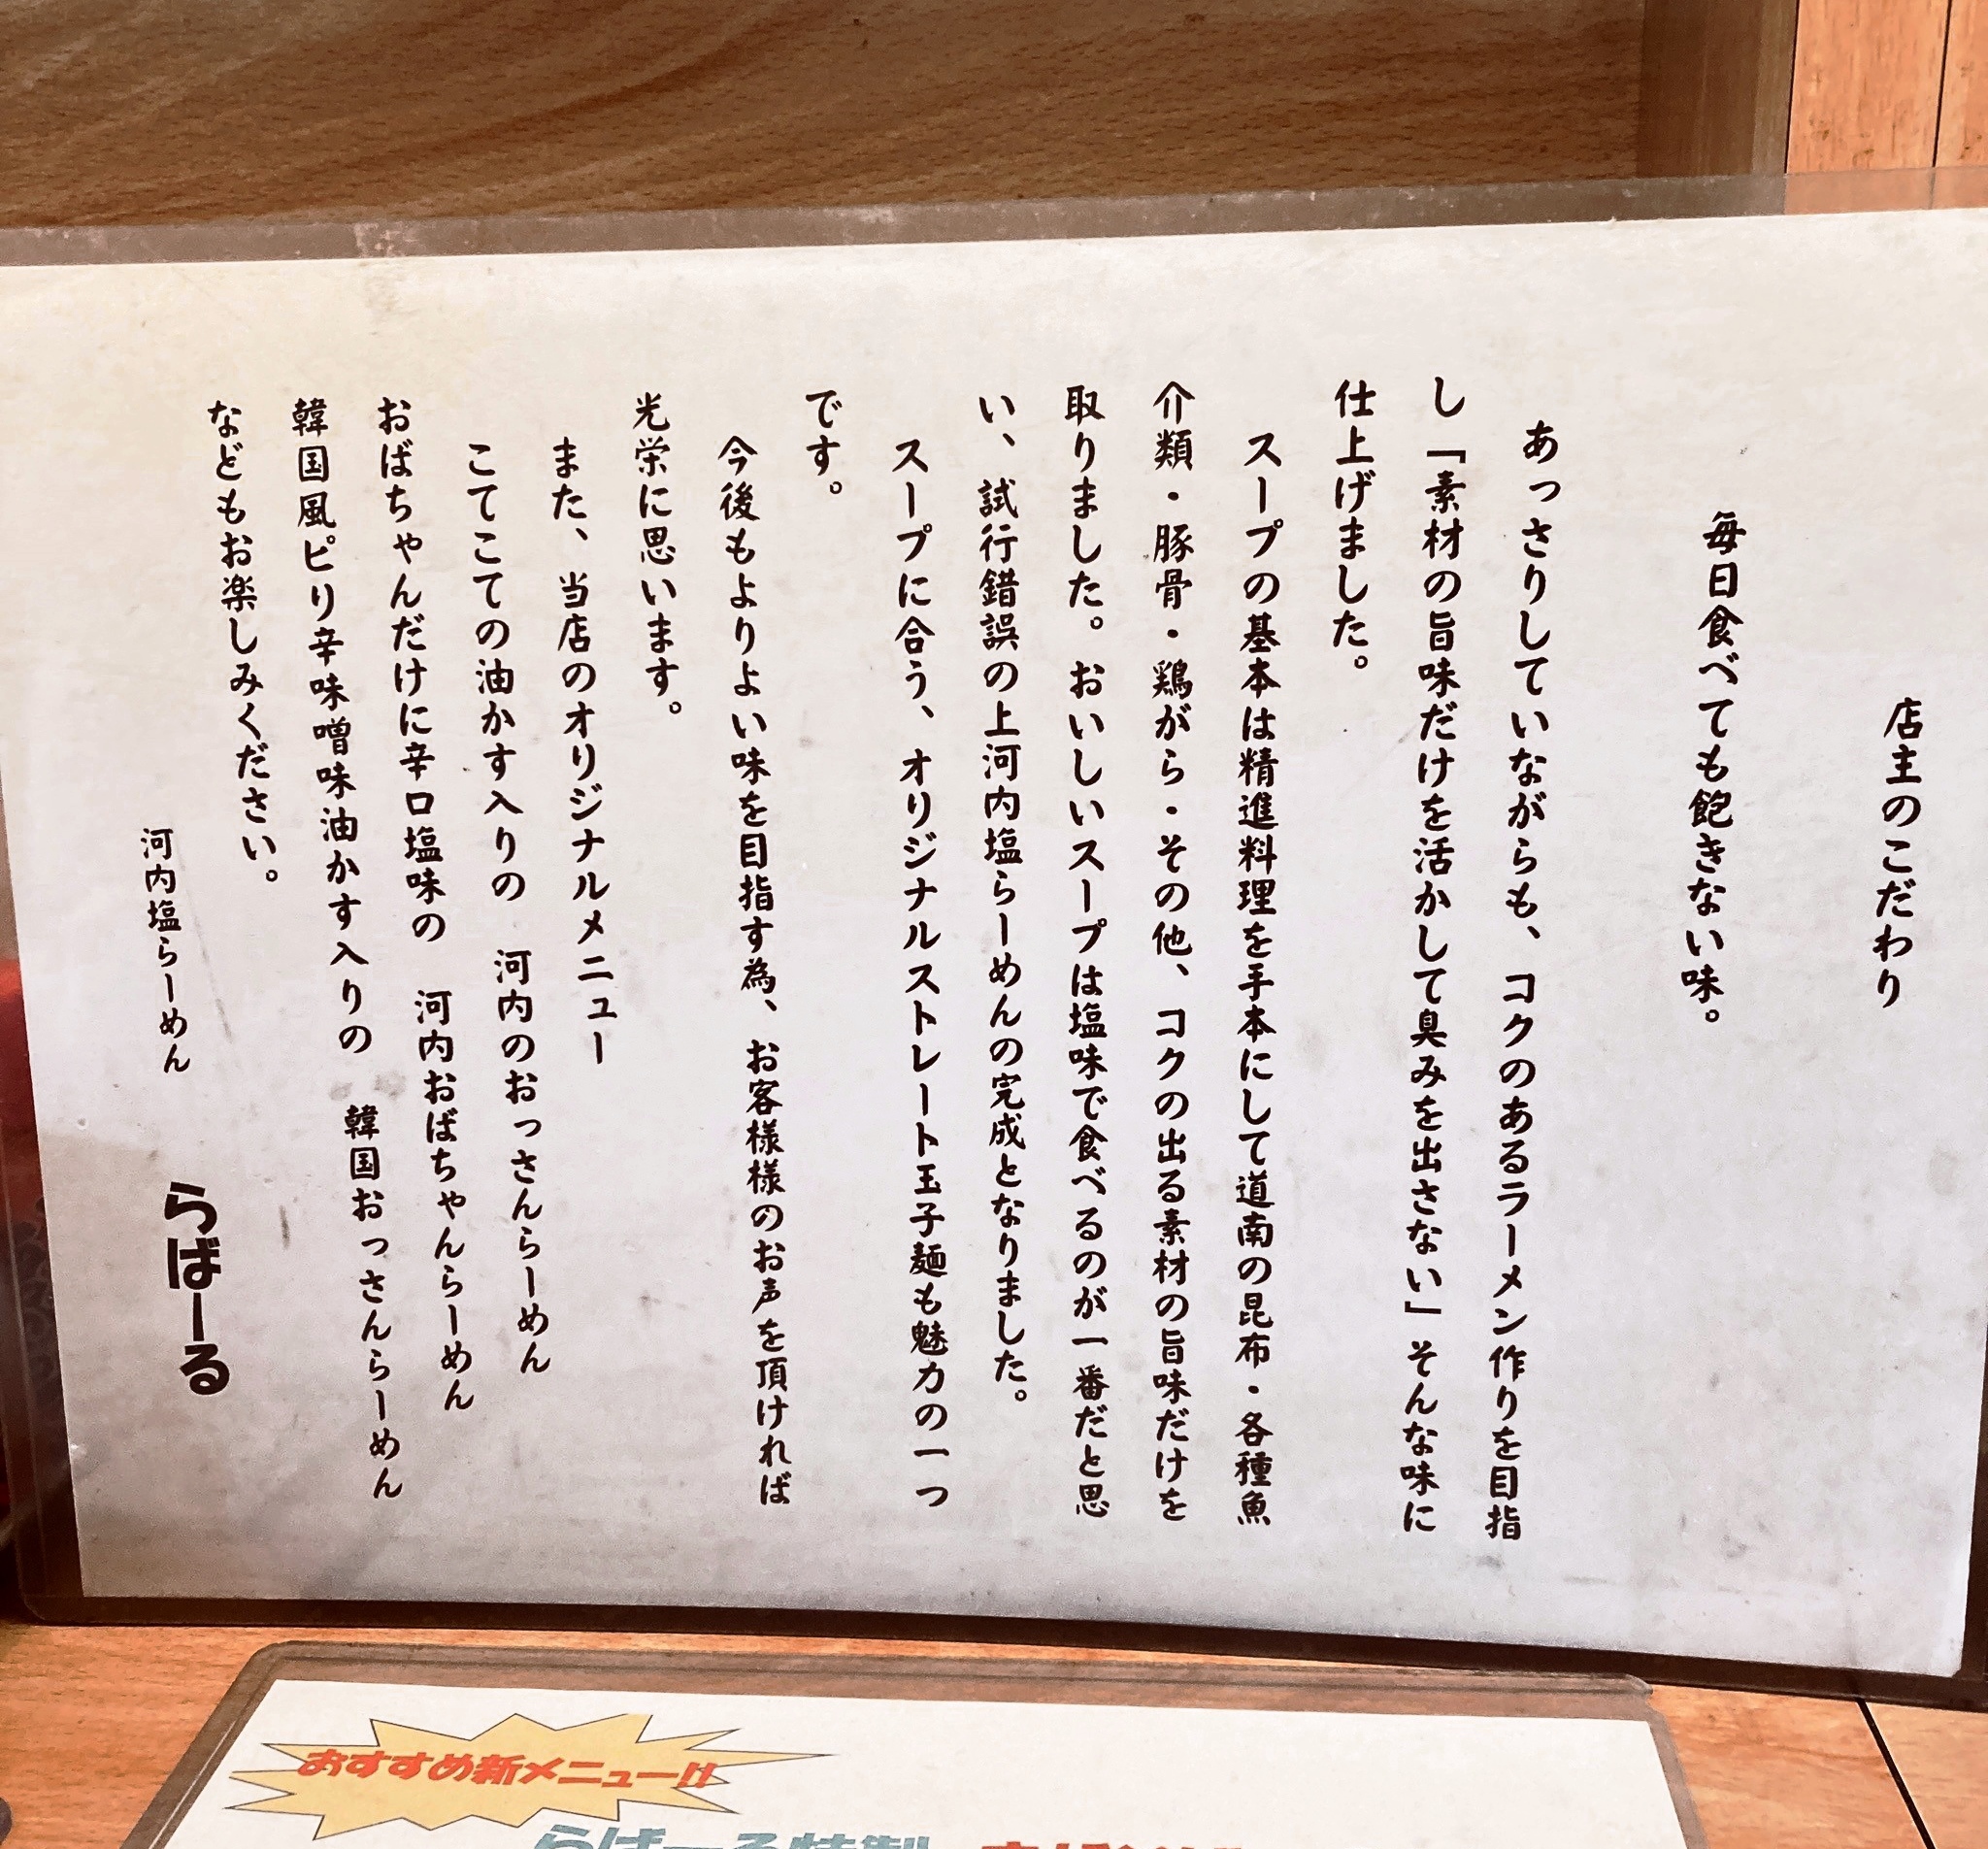 店主のこだわり
毎日食べても飽きない味。
あっさりしていながらも、コクのあるラーメン作りを目指
し「素材の旨味だけを活かして臭みを出さない」そんな味に
仕上げました。
スープの基本は精進料理を手本にして道南の昆布・各種魚
介類・豚骨・鶏がら・その他、コクの出る素材の旨味だけを
取りました。おいしいスープは塩味で食べるのが一番だと思
い、試行錯誤の上河内塩らーめんの完成となりました。
スープに合う、オリジナルストレート玉子麺も魅力の一つ
です。
今後もよりよい味を目指す為、お客様様のお声を頂ければ
光栄に思います。
また、当店のオリジナルメニュー
こてこての油かす入りの　河内のおっさんらーめん
おばちゃんだけに辛口塩味の　河内おばちゃんらーめん
韓国風ピリ辛味噌味油かす入りの　韓国おっさんらーめん
などもお楽しみください。
河内塩らーめん　らばーる
おすすめ新メニュー!!
らばーる特製